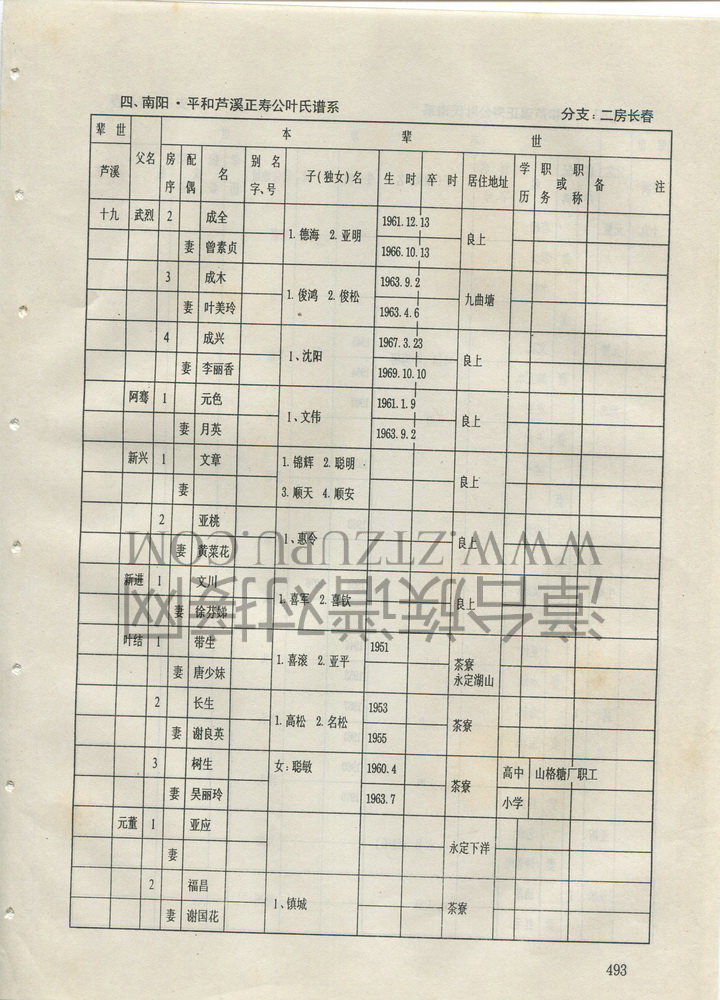 四、南阳·平和芦溪正寿公叶氏谱系
分支：二房长春
辈世 本 辈 世
芦溪 父名 房序 配偶 名 别名字、号 子(独女)名 生时 卒时 居住地址 学历 职务或职称 备注
十九 武烈 2 成全 1.德海 2.亚明 1961.12.13 良上
妻 曾素贞 1966.10.13
3 成木 1.俊鸿 2.俊松 1963.9.2 九曲塘
妻 叶美玲 1963.4.6
4 成兴 1、沈阳 1967.3.23 良上
妻 李丽香 1969.10.10
阿骞 1 元色 1、文伟 1961.1.9 良上
妻 月英 1963.9.2
新兴 1 文章 1.锦辉 2.聪明 良上
妻 3.顺天 4.顺安
2 亚桃 1、惠令 良上
妻 黄菜花
新进 1 文川 1.喜军 2.喜钦 良上
妻 徐芬娣
叶结 1 带生 1.喜滚 2.亚平 1951 茶寮
妻 唐少妹 永定湖山
2 长生 1.高松 2.名松 1953 茶寮
妻 谢良英 1955
3 树生 女：聪敏 1960.4 茶寮 高中 山格糖厂职工
妻 吴丽玲 1963.7 小学
元董 1 亚应 永定下洋
妻
2 福昌 1、镇城 茶寮
妻 谢国花
493
WWW.ZTZUPU.COM
漳台族谱对接网